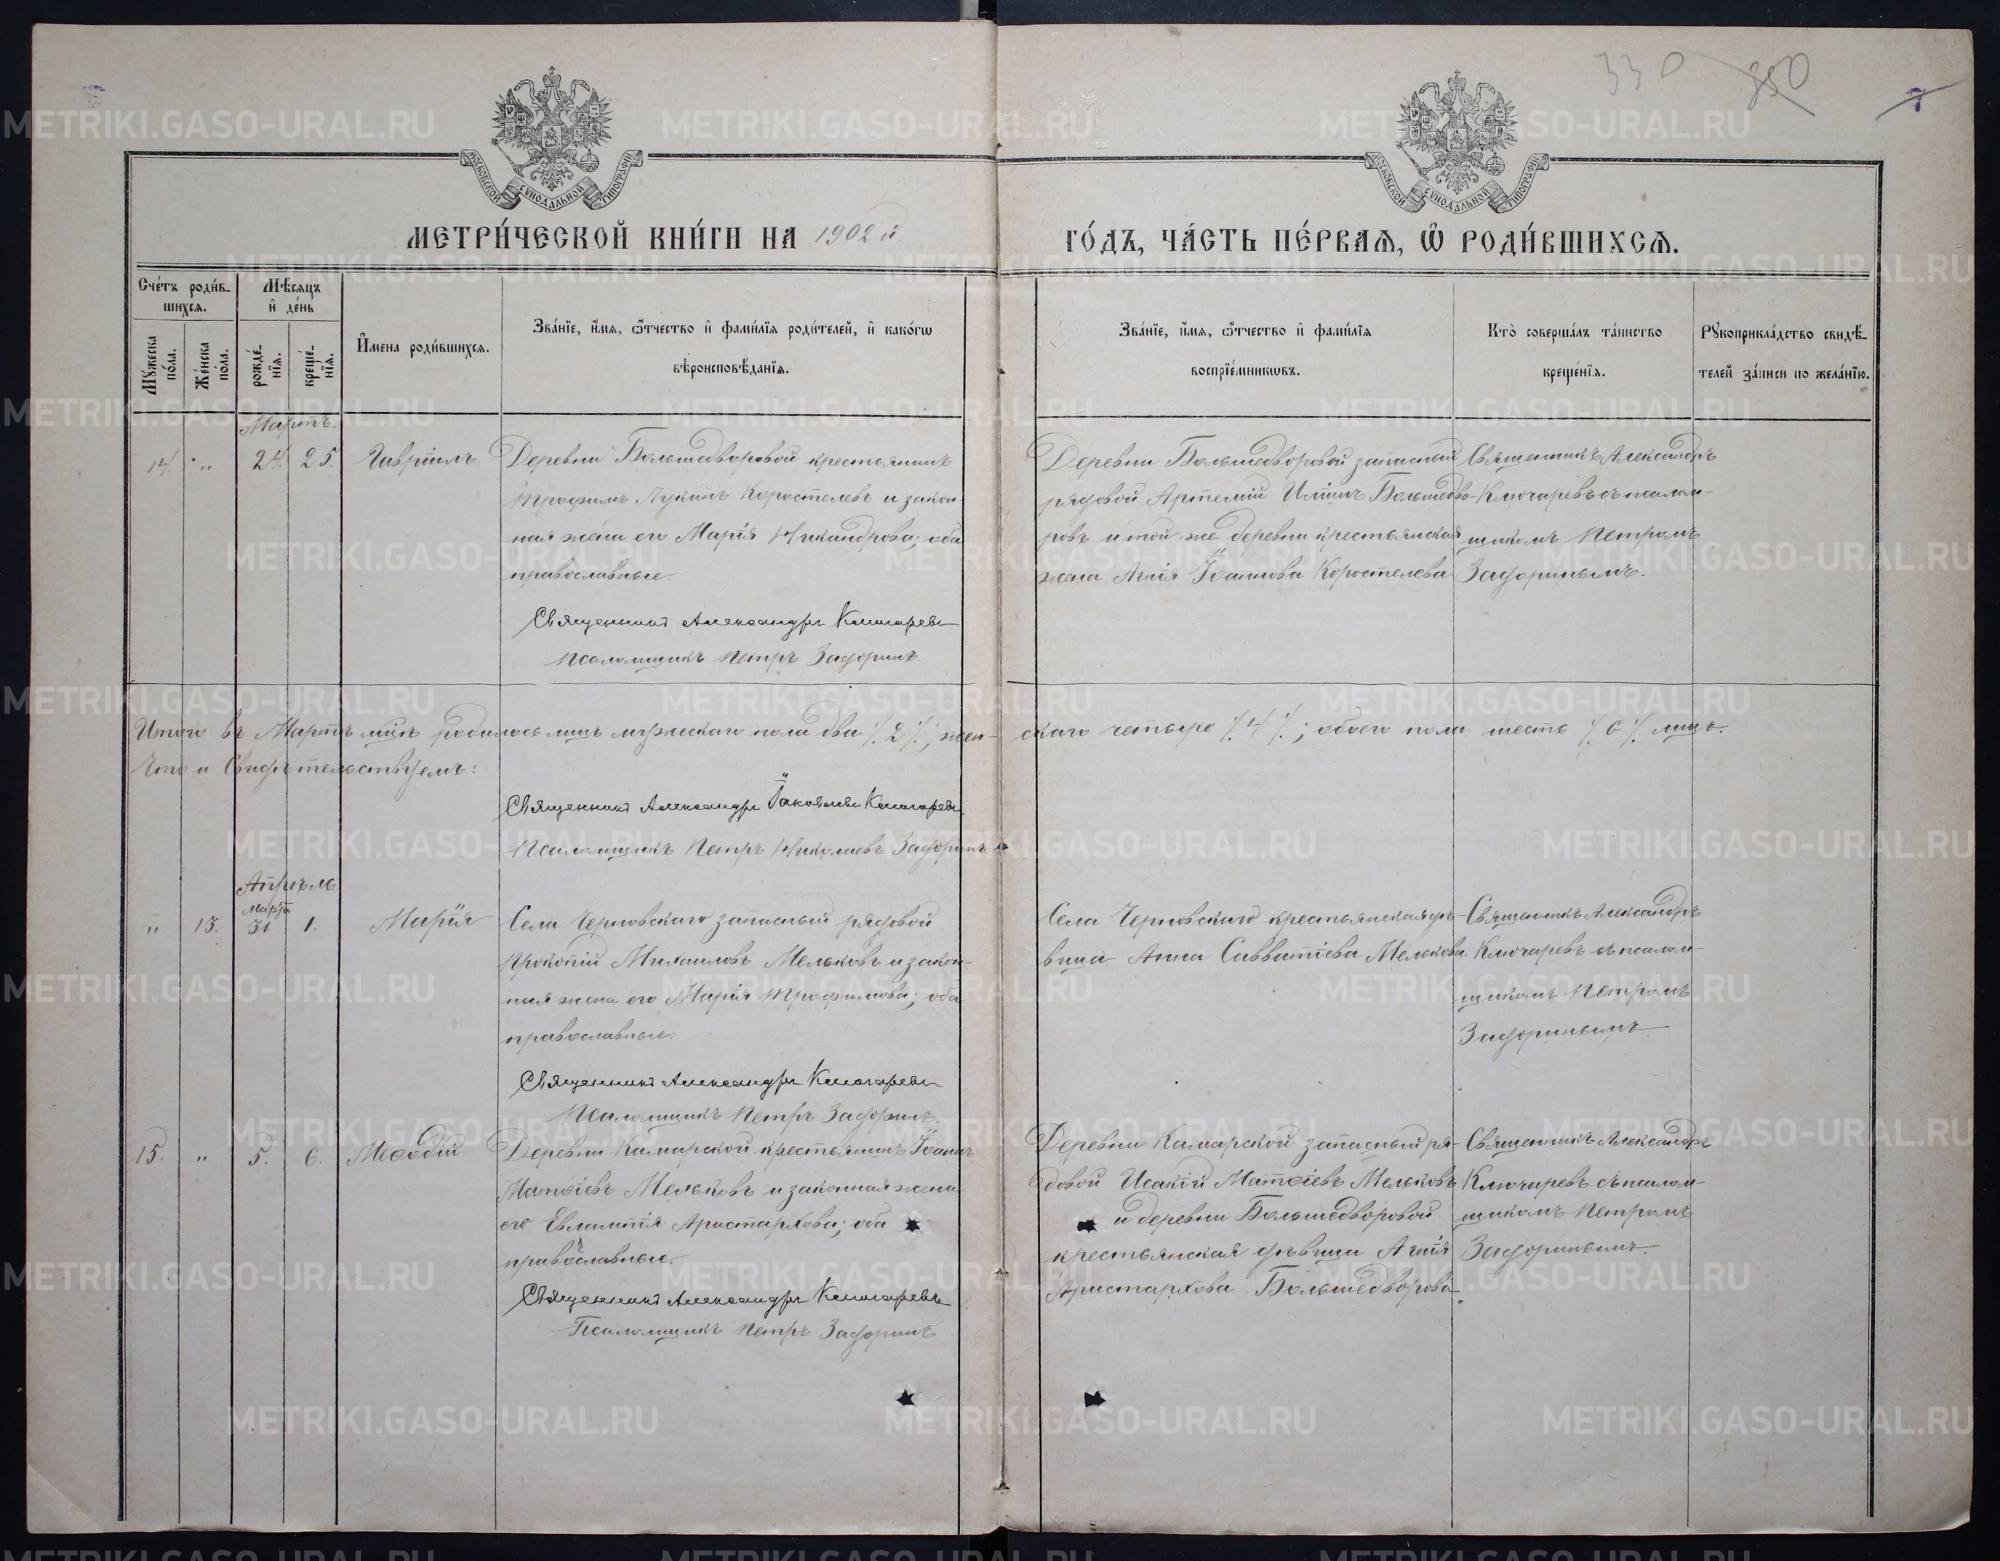 330 850 7
МОСКОВСКОЙ СУНОДАЛЬНОЙ ТИПОГРАФІИ
МОСКОВСКОЙ СУНОДАЛЬНОЙ ТИПОГРАФІИ
МЕТРИ́ЧЕСКОЙ КНИ́ГИ НА 1902й ГО́ДЪ, ЧА́СТЬ ПЕ́РВАѦ, Ѽ РОДИ́ВШИХСѦ.
Сче́тъ роди́в-
шихсѧ.
Мꙋ́жеска по́ла.
Же́нска по́ла.
Мѣ́сѧцъ и҆ де́нь
рожде́-нїѧ.
креще́-нїѧ.
И҆мена роди́вшихсѧ.
Зва́нїе, и҆́мѧ, ѻ҆́тчество и҆ фами́лїѧ роди́телей, и҆ како́гѡ
вѣроисповѣ́данїѧ.
Зва́нїе, и҆́мѧ, ѻ҆́тчество и҆ фами́лїѧ
воспрїе́мникѡвъ.
Кто̀ соверша́лъ та́инство
креще́нїѧ.
Рꙋкоприкла́дство свидѣ́-
телей за́писи по жела́нїю.
Мартъ.
14. " 24. 25. Гавріилъ
Деревни Большедворовой крестьянинъ
Трофимъ Лукинъ Коростелевъ и закон-
ная жена его Марія Никандрова; оба
православные.
Священникъ Александръ Ключаревъ
Псаломщикъ Петръ Задоринъ
Деревни Большедворовой запасный
рядовой Артемій Ильинъ Большедво-
ровъ и той-же деревни крестьянская
жена Агнія Іоаннова Коростелева
Священникъ Александръ
Ключаревъ съ псалом-
щикомъ Петромъ
Задоринымъ.
Итого въ Мартѣ мцѣ родилось лицъ мужескаго пола два ٪ 2 ٪; жен- скаго четыре ٪ 4 ٪; обоего пола шесть ٪ 6 ٪ лицъ.
Что и Свидѣтельствуемъ:
Священникъ Александръ Іаковлевъ Ключаревъ
Псаломщикъ Петръ Николаевъ Задоринъ
Апрѣль
Марта
" 13. 31 1. Марія
Села Черновскаго запасный рядовой
Прокопій Михаиловъ Мельковъ и закон-
ная жена его Марія Трофимова; оба
православные.
Священникъ Александръ Ключаревъ
Псаломщикъ Петръ Задоринъ
Села Черновскаго крестьянская дѣ-
вица Анна Савватіева Мелькова
Священникъ Александръ
Ключаревъ съ псалом-
щикомъ Петромъ
Задоринымъ
15. " 5. 6. Меѳодій
Деревни Камарской крестьянинъ Іоаннъ
Матѳіевъ Мельковъ и законная жена
его Евлампія Аристархова; оба
православные.
Священникъ Александръ Ключаревъ
Псаломщикъ Петръ Задоринъ
Деревни Камарской запасный ря-
довой Исакій Матѳіевъ Мельковъ
и деревни Большедворовой
крестьянская дѣвица Агнія
Аристархова Большедворова.
Священникъ Александръ
Ключаревъ съ псалом-
щикомъ Петромъ
Задоринымъ.
METRIKI.GASO-URAL.RU